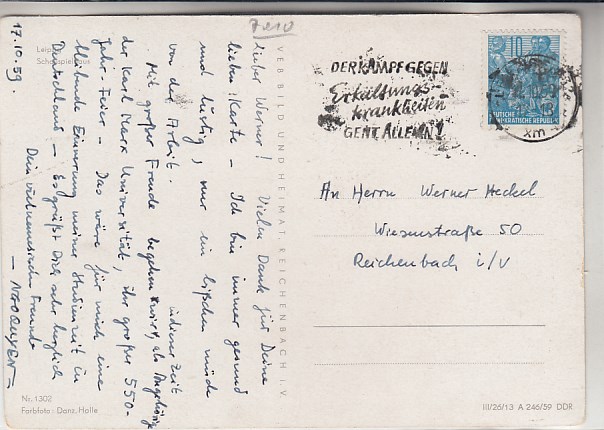 17.10.59
Leip
Schauspielhaus
Lieber Werner! Vielen Dank für Deine
liebe Karte – Ich bin immer gesund
und lustig, nur ein bißchen müde
von der Arbeit.
in dieser Zeit
Mit großer Freude begehen wir, als Angehörige
der Karl Marx Universität, ihr großes 550-
Jahr-Feier – Das wäre für mich eine
lebende Erinnerung meiner Studienzeit in
Deutschland – Es grüßt Dich sehr herzlich
Dein vietnamesischer Freund
– NGOQUYEN –
Nr. 1302
Farbfoto: Danz, Halle
VEB BILD UND HEIMAT, REICHENBACH I. V.
DER KAMPF GEGEN
Erkältungs-
krankheiten
GEHT ALLE AN!
10
DEUTSCHE
DEMOKRATISCHE REPUBLIK
xm
An Herrn Werner Heckel
Wiesenstraße 50
Reichenbach i/V
III/26/13 A 246/59 DDR